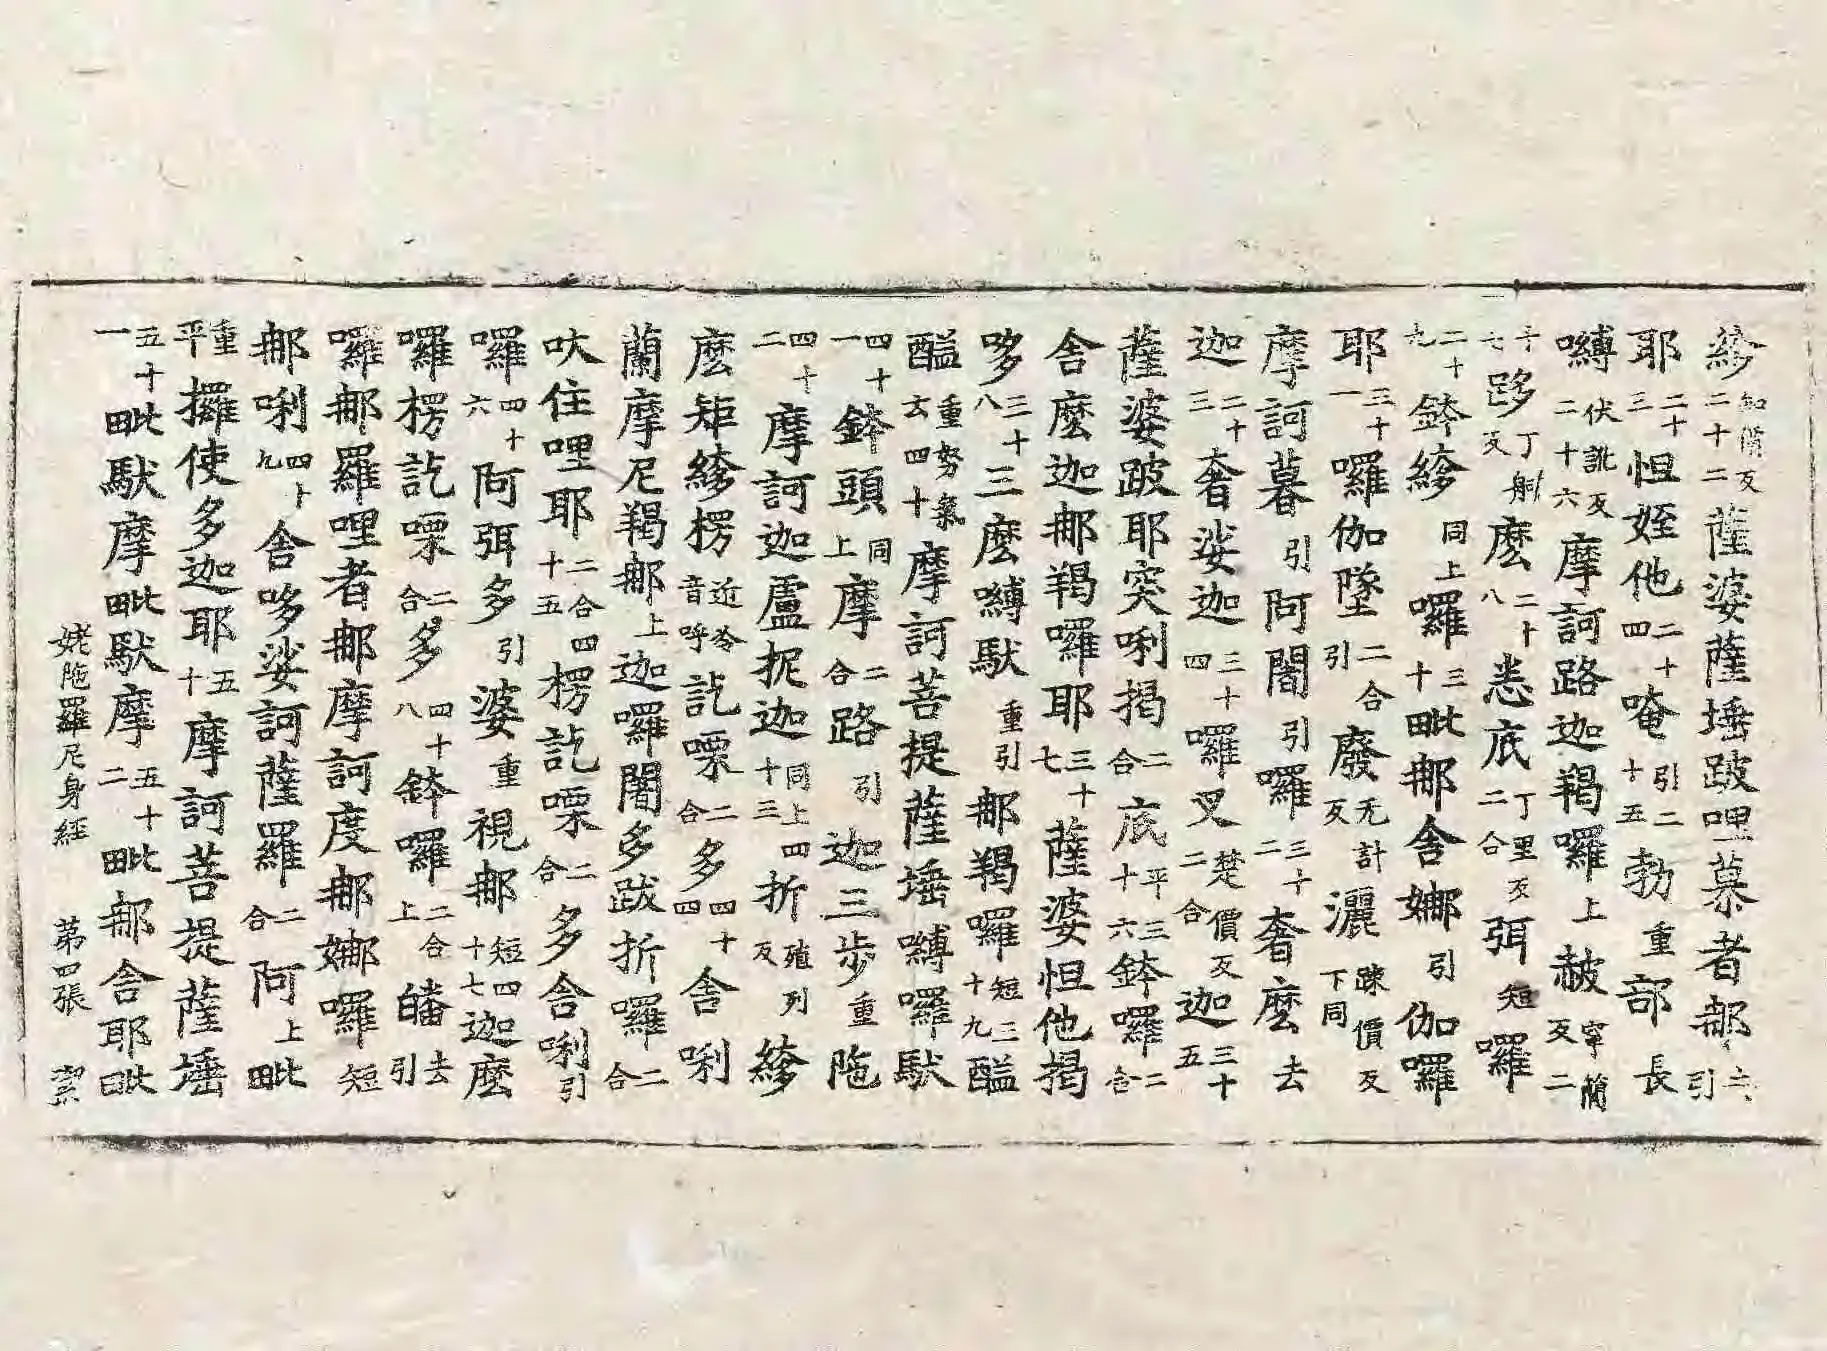 紾知價反二十二薩婆薩埵跛哩慕者那引二
耶二十三怛姪他二十四唵引二十五勃重部長
嚩伏訛反二十六摩訶路迦羯囉上赧寧簡反二
十七跢丁舸反麽二十八悉底丁里反二合弭短囉
二十九鉢紾同上囉三十毗那舍娜引伽囉
耶三十一囉伽墜二合引廢无計反灑踈價反下同
摩訶暮引阿闇引囉三十二奢麽去
迦二十三奢娑迦三十四囉叉楚價反二合迦三十五
薩婆跛耶突唎揭二合底平三十六鉢囉二合
舍麽迦那羯囉耶三十七薩婆怛他揭
哆三十八三麽嚩馱重引那羯囉短三十九醯
醯重努氣去四十摩訶菩提薩埵嚩囉馱
四十一鉢頭同上摩二合路引迦三步重陁
四十二摩訶迦盧抳迦同上四十三折殖列反紾
麽矩紾楞近冷音呼訖㗚二合多四十四舍唎
蘭摩尼羯那上迦囉闇多跋折囉二合
吠住哩耶二合四十五楞訖㗚二合多舍唎引
囉四十六阿弭多引婆重視那短四十七迦麽
囉楞訖㗚二合多四十八鉢囉二合上皤去引
囉那羅哩者那摩訶度那娜囉短
那唎四十九舍哆娑訶薩羅二合阿上毗
重平攞使多迦耶五十摩訶菩提薩埵
五十一毗馱摩毗馱摩五十二毗那舍耶毗
姥陁羅尼身經 第四張 㓗